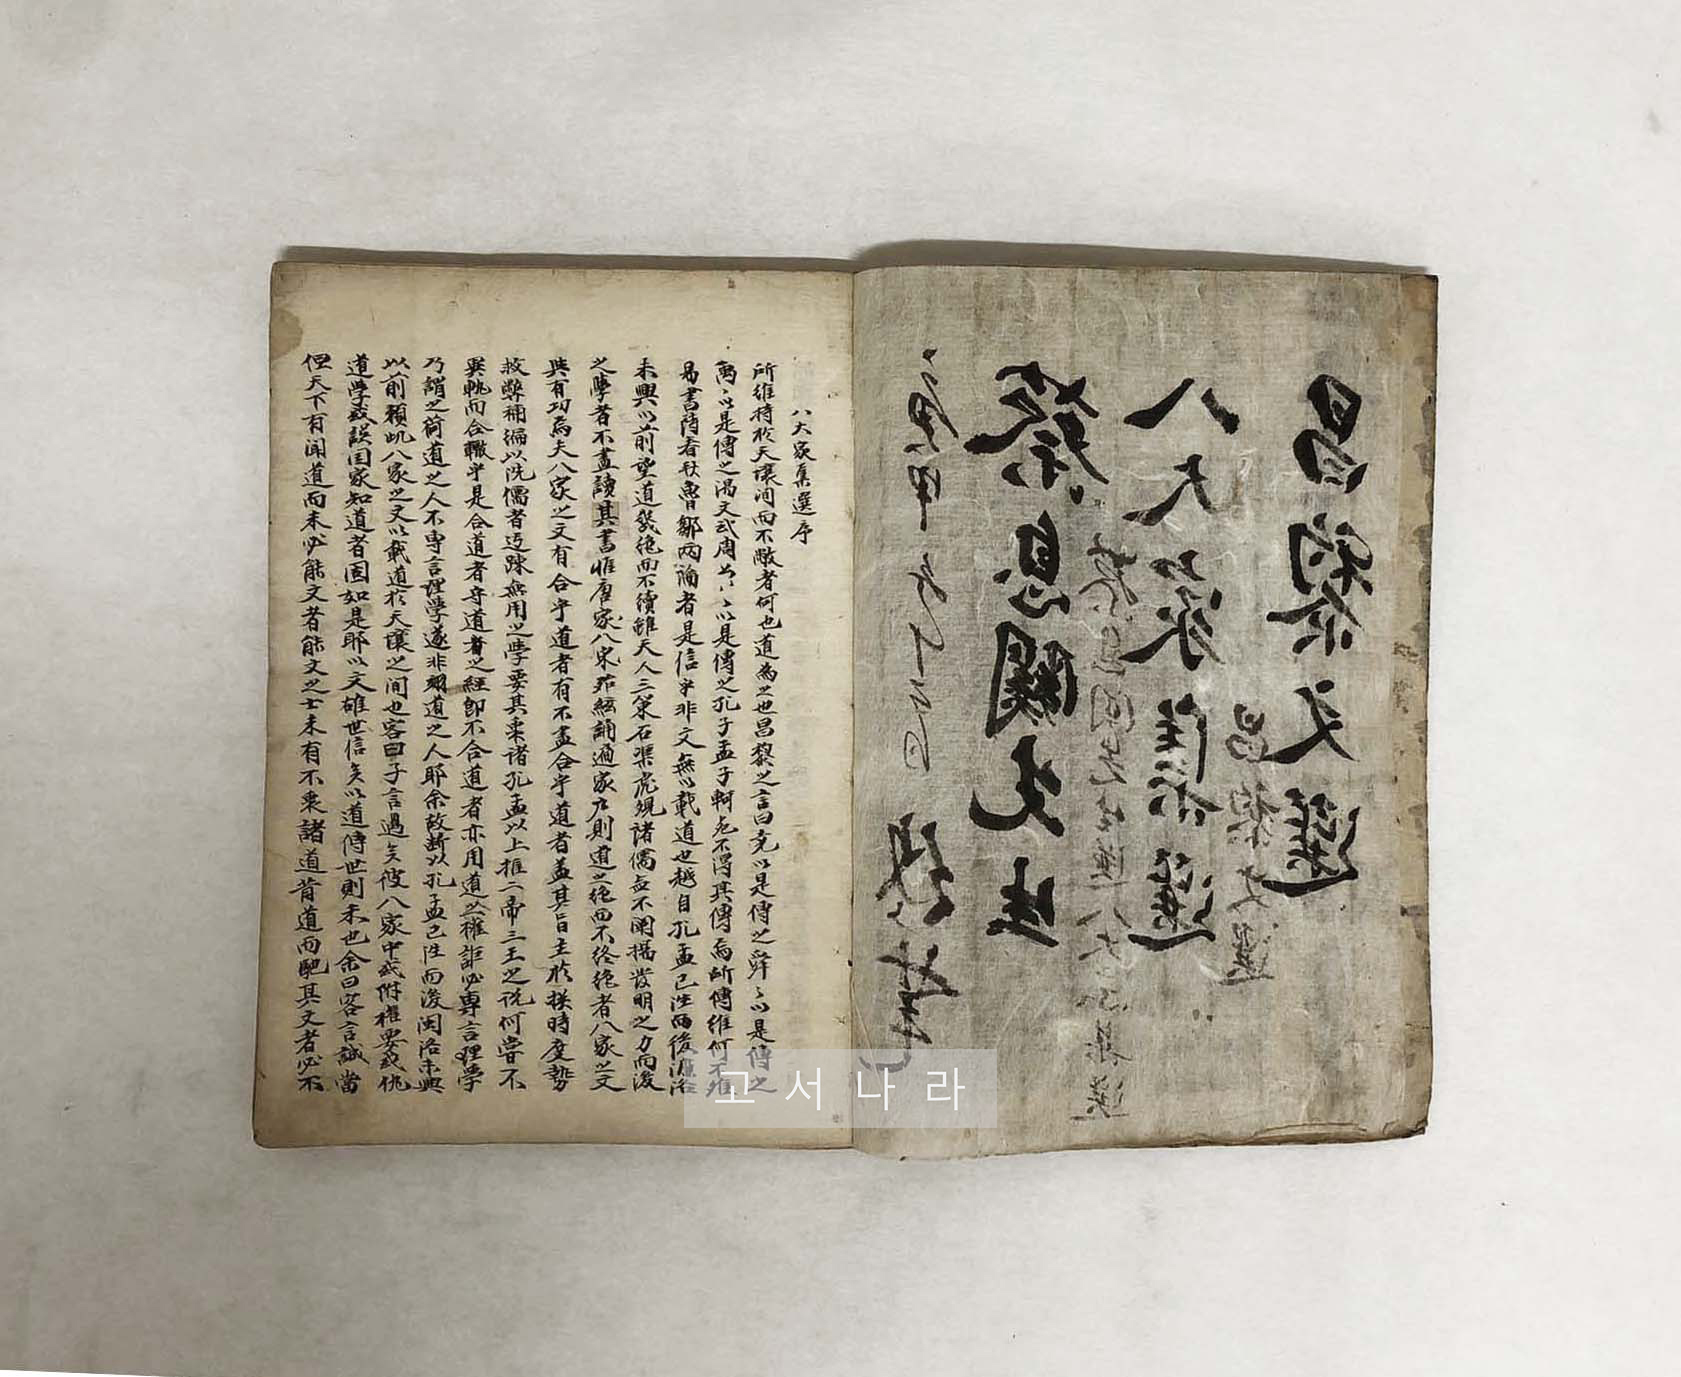 昌黎文選
昌黎文選
八大家集選
蔡息關先生選八大家集選
蔡息關先生
八大家集選序
所維持於天壤间而不敝者何也道為之也昌黎之言曰堯以是傳之舜〻以是傳之
禹〻以是傳之湯文武周公〻以是傳之孔子孟子軻死不得其傳焉所傳維何不維
易書詩春秋魯鄒兩論者是信乎非文無以載道也越自孔孟已往而後濂洛
未興以前望道幾绝而不續雖天人三策石渠虎觀諸儒無不闡揚發明之力而後
之學者不盡讀其書惟唐家八宋茆絃誦遍家户則道之绝而不终绝者八家之文
與有功焉夫八家之文有合乎道者有不盡合乎道者盖其旨主於揆時度勢
救弊補偏以洗儒者迂踈無用之學要其衷諸孔孟以上推二帝三王之說何嘗不
異軌而合轍乎是合道者守道者之經卽不合道者亦用道之權詎必専言理學
乃謂之衛道之人不専言理學遂非翊道之人耶余故斷以孔孟已往而後閩洛未興
以前頼此八家之文以載道於天壤之间也客曰子言過矣彼八家中或附權要或佻
道學或誤囯家知道者固如是耶以文雄世信矣以道傳世則未也余曰客言誠當
但天下有闻道而未必能文者能文之士未有不衷諸道背道而馳其文者必不
고서나라